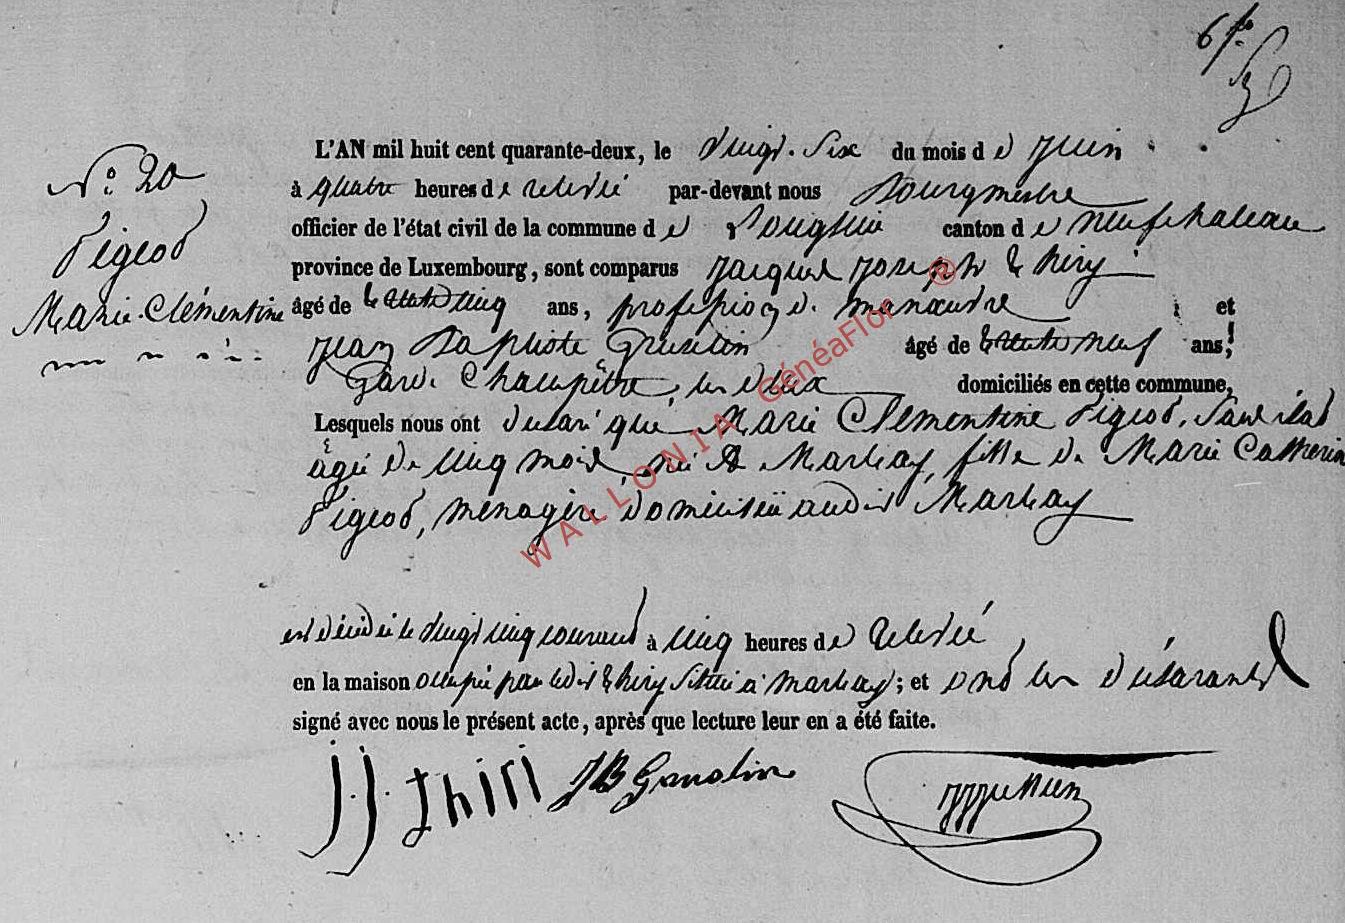 N° 20
Pigeot
Marie-Clémentine
L'AN mil huit cent quarante-deux, le vingt-six du mois d e juin
à quatre heures d e relevé par-devant nous Bourgmestre
officier de l'état civil de la commune d e canton d e neufchateau
province de Luxembourg, sont comparus jacques joseph thiry
âgé de trente cinq ans, profession de manœuvre et
jean Baptiste âgé de trente neuf ans,
Garde Champêtre, les deux domiciliés en cette commune,
Lesquels nous ont déclaré que Marie Clémentine Pigeot, sans état
âgée de cinq mois, née à Marbay, fille de Marie Catherine
Pigeot, ménagère domiciliée audit Marbay
est décédée le vingt cinq courant à cinq heures d e relevé
en la maison occupée par ledit thiry située à marbay; et ont les déclarants
signé avec nous le présent acte, après que lecture leur en a été faite.
JJ thiri JB
WALLONIA GénéaFlor ®